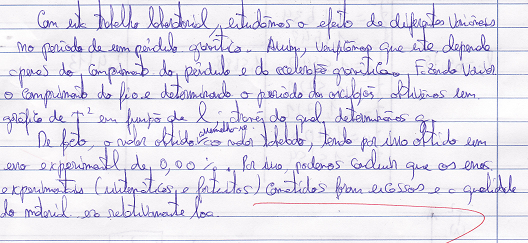 Com este trabalho laboratorial, estudámos o efeito de diferentes variáveis
no período de um pêndulo gravítico. Assim, verificámos que este depende
apenas do comprimento do pêndulo e da aceleração gravítica. Fazendo variar
o comprimento do fio e determinando o período das oscilações obtivemos um
gráfico de T² em função de l, através do qual determinámos g.
De facto, o valor obtido assemelha-se ao valor tabelado, tendo por isso obtido um
erro experimental de 0,00 %. Por isso, podemos concluir que os erros
experimentais (sistemáticos e fortuitos) cometidos foram escassos e a qualidade
do material era relativamente boa.